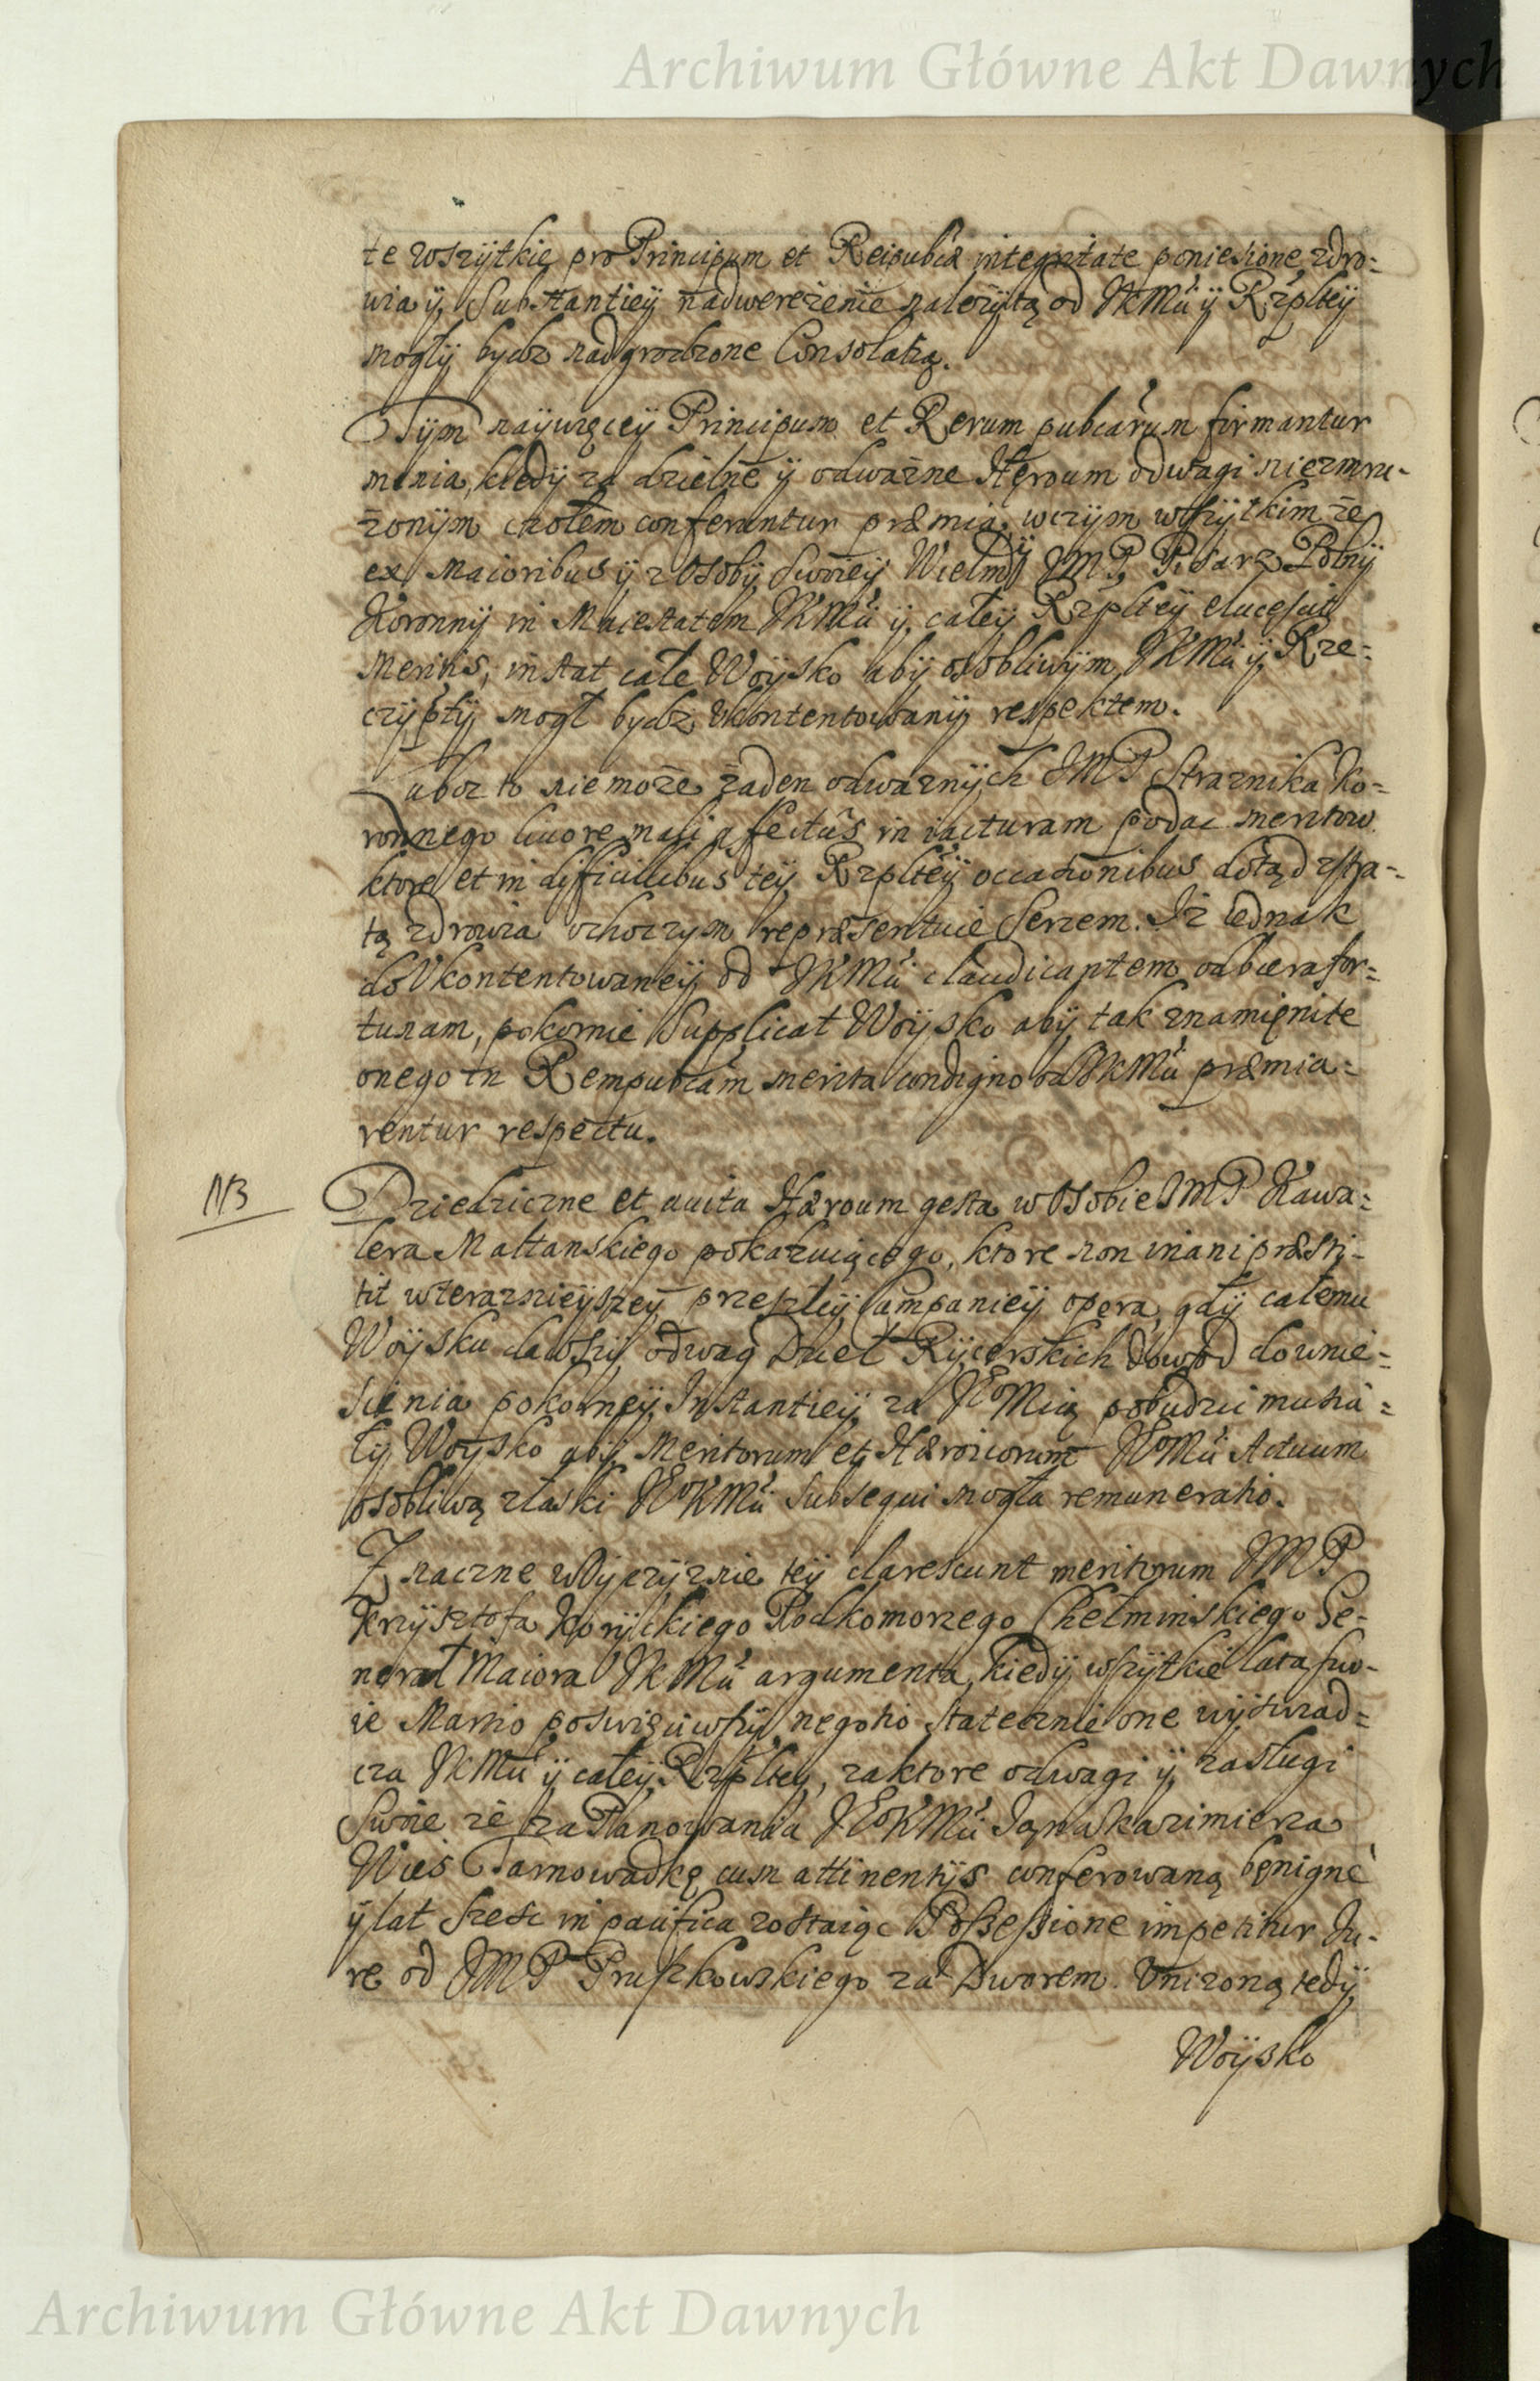 Archiwum Główne Akt Dawnych
te wszÿtkie pro Principum et Reipubcæ integritate poniesione, zdro=
wia ÿ Substantieÿ nadwerezenie nalezÿtą od JKMci ÿ Rzpltey
mogłÿ bydz nadgrodzone Consolatią.
Tÿm naÿwięceÿ Principum et Rerum pubcarum firmantur
mænia, kiedÿ za dzielne ÿ odwazne Heroum odwagi niezmru-
zonÿm czołem conferuntur præmia, wczÿm wszÿtkim ze
ex Maioribus ÿ z Osobÿ Swoieÿ Wielmÿ JMP, Pisarz Polnÿ
Koronnÿ in Maiestatem JKMci ÿ całeÿ Rzplteÿ elucescit
Meritis, instat całe Woÿsko abÿ osobliwÿm JKMci ÿ Rze=
czÿpltÿ mogł bydz Vkontentowanÿ respektem.
Luboz to niemoze zaden odwaznÿch JMP Straznika Ko=
ronnego liuore mali affectus in iacturam podac meritow.
ktore et in difficilibus teÿ Rzplteÿ occasionibus dotąd zstra-
tą zdrowia ochoczym repræsentuie Sercem. Iz iednak
do Vkontentowaneÿ od JKMci claudicantem odbiera for=
tunam, pokornie Supplicat Woÿsko abÿ tak znamięnite
onego in Rempubcam merita condigno od JKMci præmia=
rentur respectu.
NB Dziedziczne et auita Hæroum gesta w Osobie JMP Kawa=
lera Maltanskiego pokazuiącego, ktore non inani præsti-
tit wteraznieÿszeÿ przeszłeÿ Campanieÿ opera, gdÿ całemu
Woÿsku dawszÿ odwag Dzieł Rÿcerskich dowod do wnie=
sienia pokorneÿ Instantieÿ za JEoMcią pobudzic musia=
łÿ Woÿsko abÿ Meritorum et Hæroicorum JEoMci Actuum
osobliwą złaski JEoKMci Subsequi mogła remuneratio.
Znaczne w Oÿczÿznie teÿ clarescunt meritorum JMP
Krzÿsztofa Korÿckiego Podkomorzego Chełminskiego Ge-
nerał Maiora JKMci argumenta, kiedÿ wszÿtkie lata swo-
ie Martio poswięciwszÿ negotio statecznie one wÿswiad=
cza JKMci ÿ całeÿ Rzplteÿ, zaktore odwagi ÿ zasługi
Swoie ze za Panowania JEoKMci Jana Kazimierza
Wies Tarnowadkę cum attinentÿs conferowaną benigne
ÿ lat szesc in pacifica zostaiąc Possessione impetitur Iu-
re od JMP Pruszkowskiego za Dworem. Vnizoną tedÿ
Woÿsko
Archiwum Główne Akt Dawnych